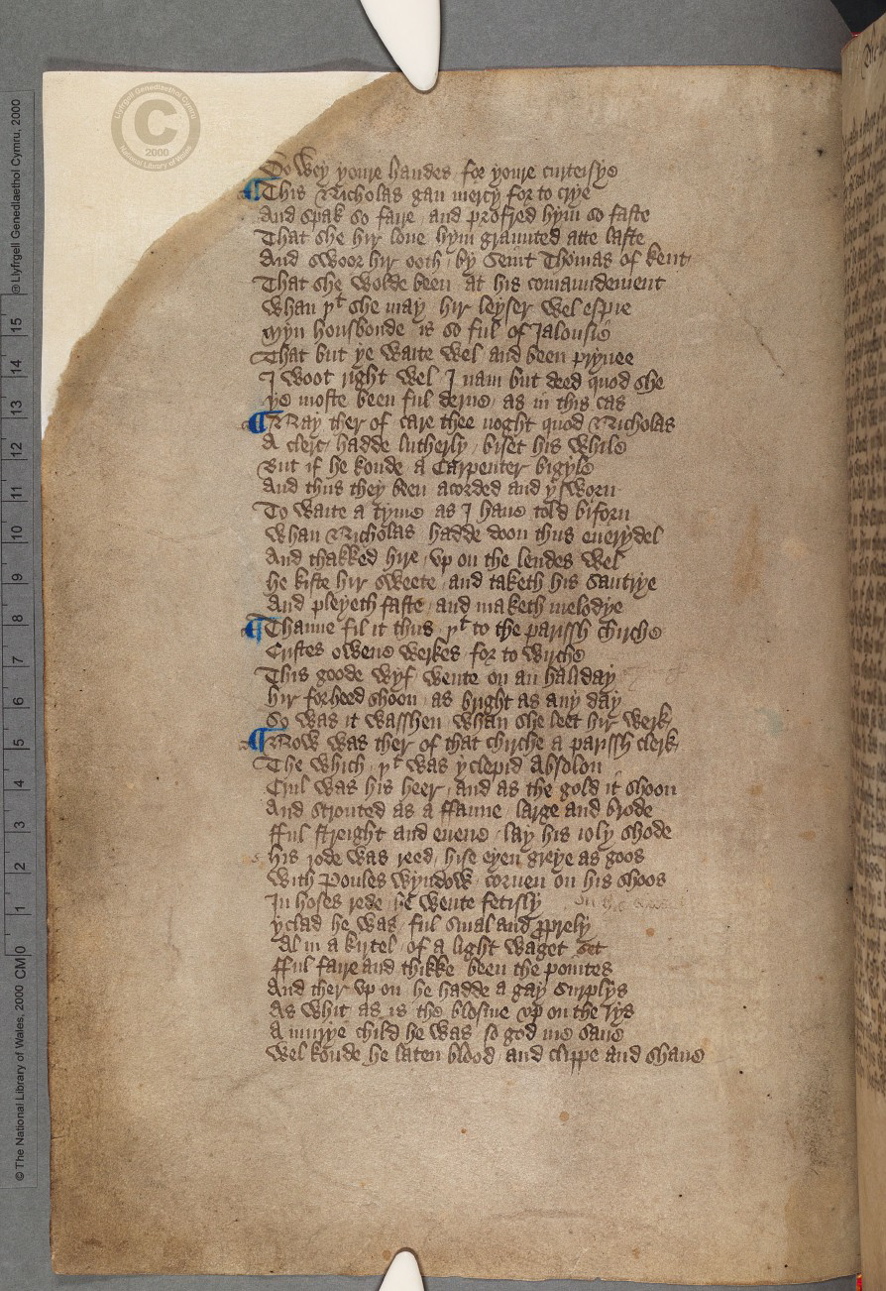 Do wey youre handes for youre curteisye
¶ This Nicholas gan mercy for to crye
And spak so faire / and profred hym so faste
That she hir loue hym graunted atte laste
And swoor hir ooth / by Seint Thomas of kent
That she wolde been at his comaundement
Whan þt she may / hir leyser wel espie
Myn housbonde is so ful of Jalousie
That but ye waite wel and been pryuee
I woot right wel I nam but deed quod she
ye moste been ful derne / as in this cas
¶ Nay ther of care thee noght quod Nicholas
A clerc hadde lutherly / biset his while
But if he koude a Carpenter bigyle
And thus they been acorded and ysworn
To waite a tyme as I haue told biforn
Whan Nicholas hadde doon thus euerydel
And thakked hire / vp on the lendes wel
he kiste hir sweete / and taketh his Sautrye
And pleyeth faste / and maketh melodye
¶ Thanne fil it thus / þt to the parissh chirche
Cristes owene werkes for to wirche
This goode wyf / wente on an haliday
hir forheed shoon / as bright as any day
So was it wasshen / whan she leet hir werk
¶ Now was ther of that chirche a parissh clerk
The which þt was yclepid Absolon
Crul was his heer / and as the gold it shoon
And strouted as a ffanne / large and brode
fful streight and euene / lay his ioly shode
his rode was reed / hise eyen greye as goos
With Poules wyndow / coruen on his shoos
In hoses rede he wente fetisly
yclad he was / ful smal and proprely
Al in a kirtel / of a light waget
fful faire and thikke been the pointes set
And ther vp on he hadde a gay Surplys
As whit as is the blosme vp on the rys
A murye child he was / so god me saue
Wel koude he laten blood / and clippe and shaue
© Llyfrgell Genedlaethol Cymru, 2000
© The National Library of Wales, 2000
CM 0 1 2 3 4 5 6 7 8 9 10 11 12 13 14 15
Llyfrgell Genedlaethol Cymru
C
2000
National Library of Wales